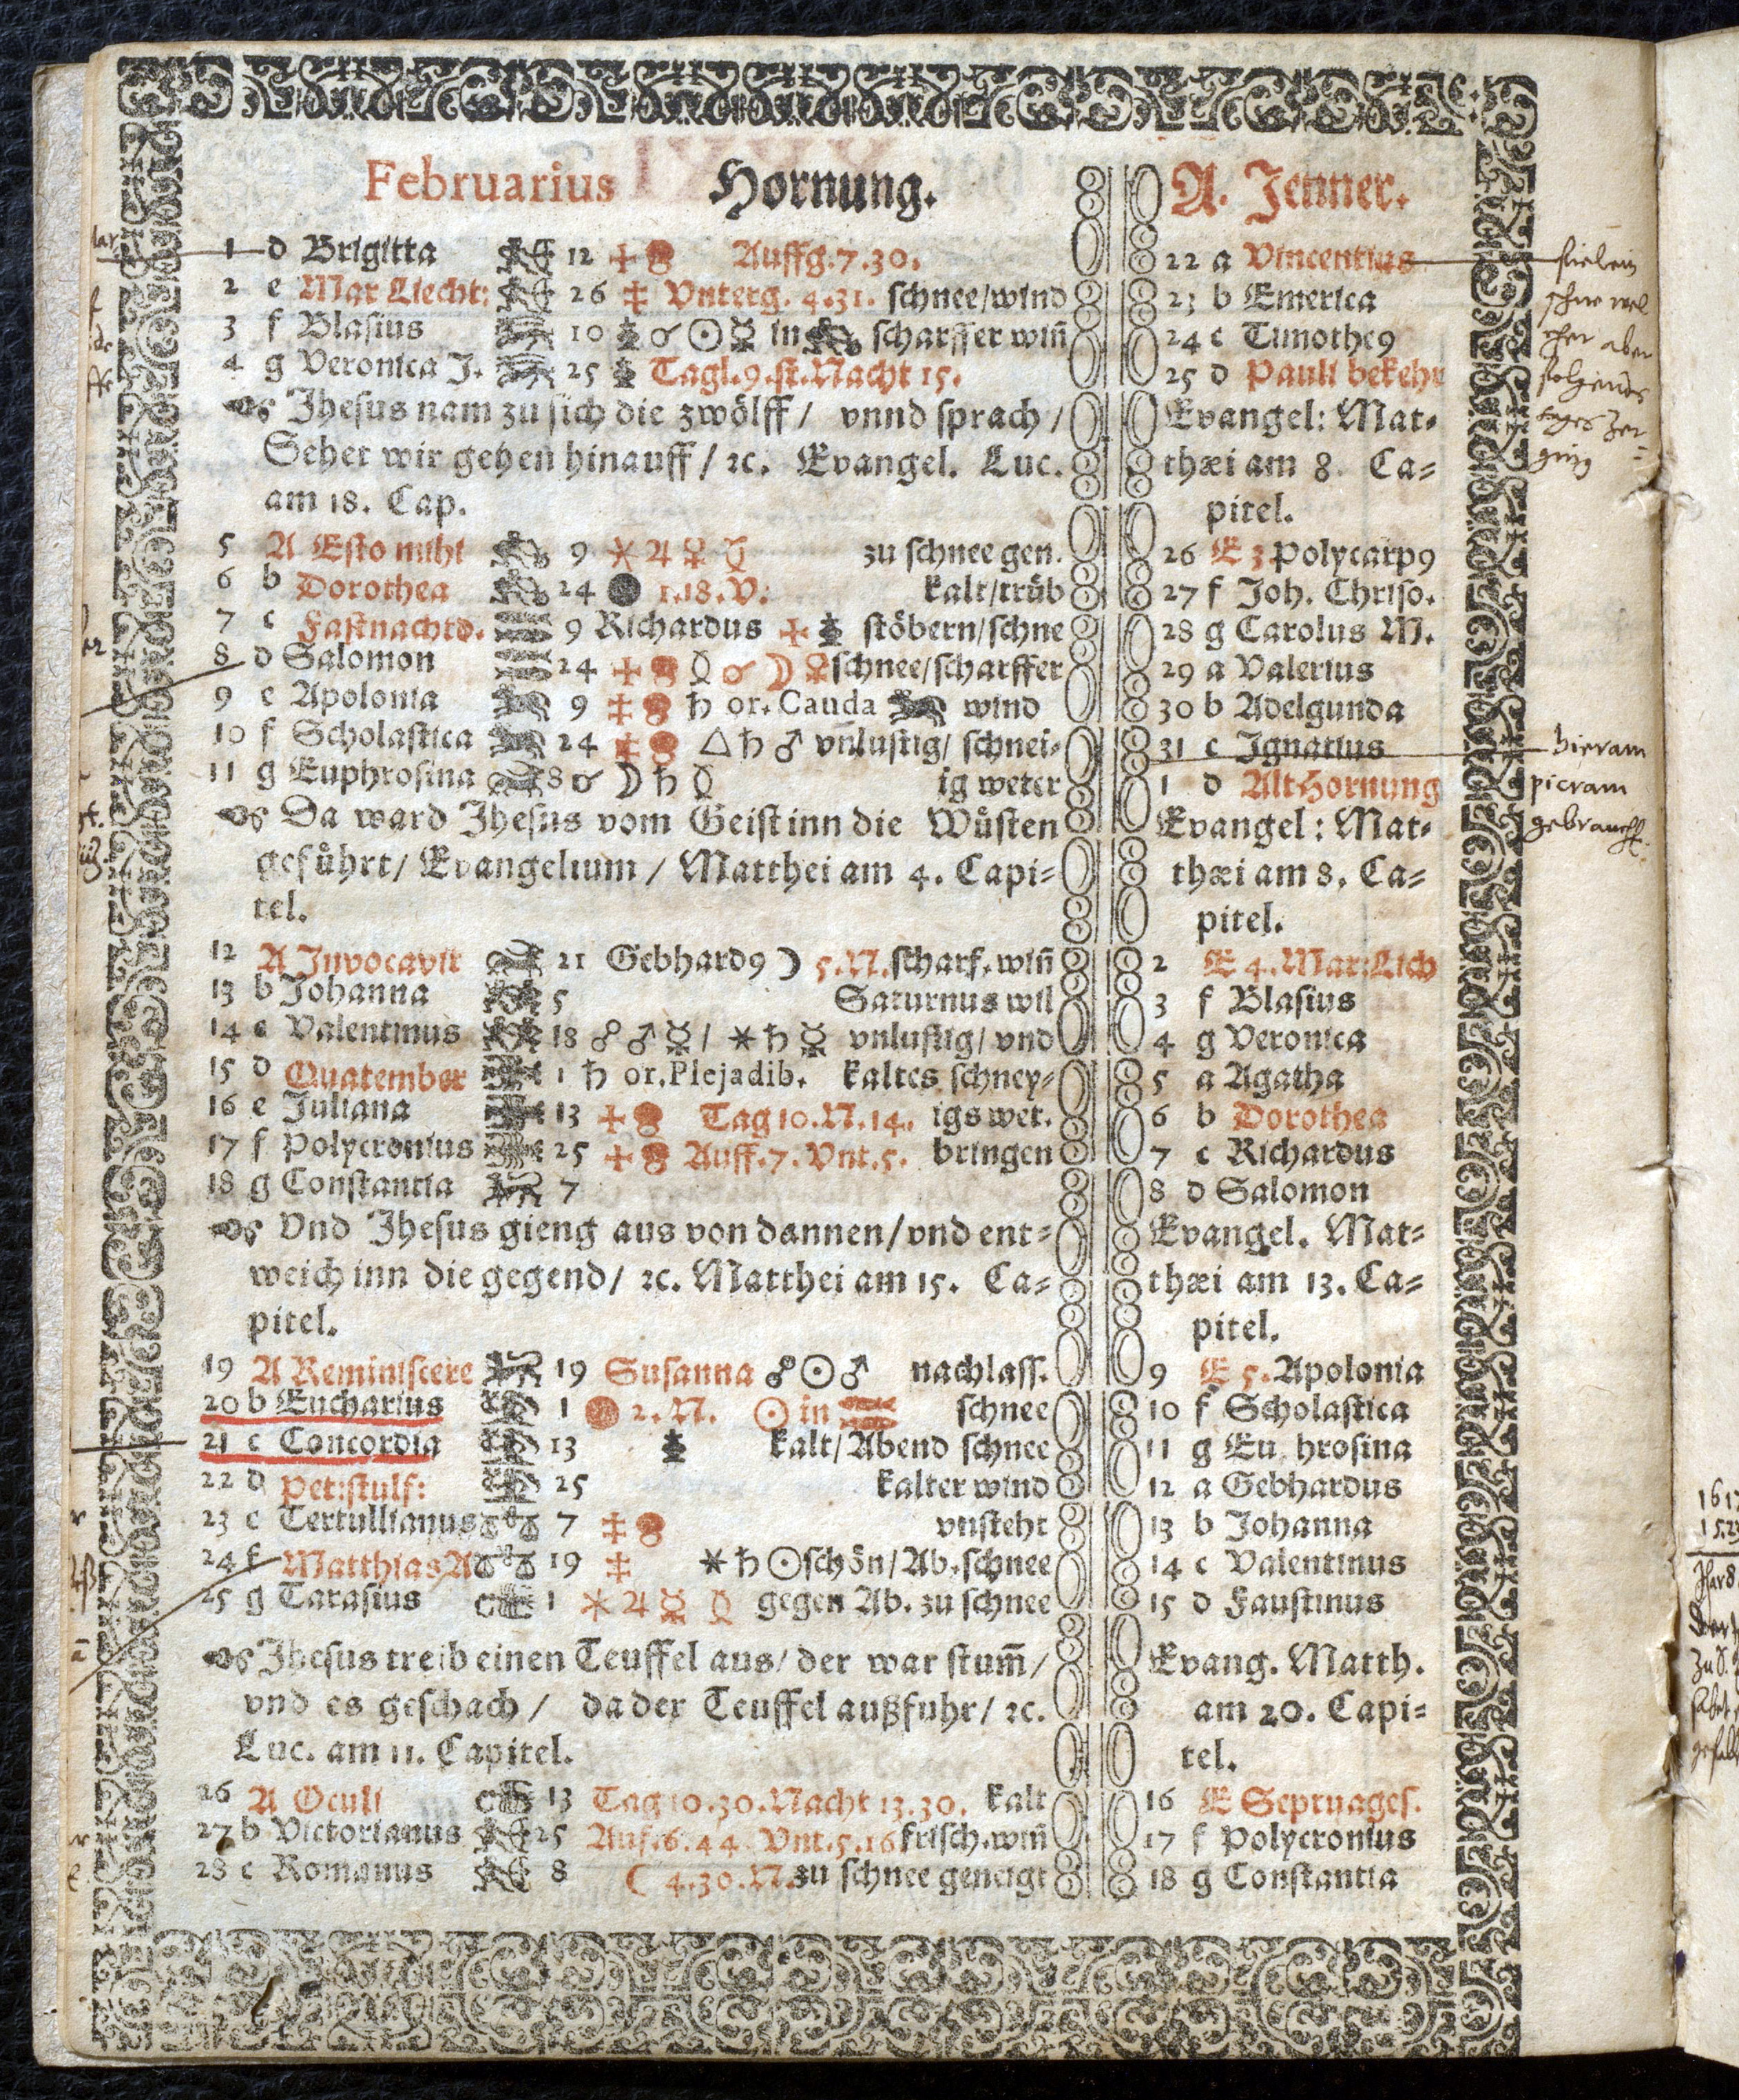 Februarius Hornung.
1 d Brigitta 12 Auffg. 7. 30.
2 e Mar Liecht: 26 Vnterg. 4. 31. schnee/wind
3 f Blasius 10 ☌ ☉ ☿ in scharffer wiñ
4 g Veronica J. 25 Tagl. 9. st. Nacht 15.
Jhesus nam zu sich die zwölff/ vnnd sprach/
Sehet wir gehen hinauff/ ꝛc. Evangel. Luc.
am 18. Cap.
5 A Esto mihi 9 ⚹ ♃ ♀ zu schnee gen.
6 b Dorothea 24 1. 18. V. kalt/trüb
7 c Fastnachtd. 9 Richardus stöbern/schne
8 d Salomon 24 ☌ ☽ ♀ schnee/scharffer
9 e Apolonia 9 ♄ or. Cauda wind
10 f Scholastica 24 △ ♄ ♂ vnlustig/ schnei⸗
11 g Euphrosina 8 ☌ ☽ ♄ ig weter
Da ward Jhesus vom Geist inn die Wüsten
geführt/ Evangelium/ Matthei am 4. Capi⸗
tel.
12 A Jnvocavit 21 Gebhard9 ☽ 5. N. scharf. wiñ
13 b Johanna 5 Saturnus wil
14 c Valentinus 18 ☍ ♂ ☿/ ⚹ ♄ ☿ vnlustig/ vnd
15 d Quatember 1 ♄ or. Plejadib. kaltes schney⸗
16 e Juliana 13 Tag 10. N. 14. igs wet.
17 f Polycronius 25 Auff. 7. Vnt. 5. bringen
18 g Constantia 7
Vnd Jhesus gieng aus von dannen/ vnd ent⸗
weich inn die gegend/ ꝛc. Matthei am 15. Ca⸗
pitel.
19 A Reminiscere 19 Susanna ☍ ☉ ♂ nachlass.
20 b Eucharius 1 2. N. ☉ in schnee
21 c Concordia 13 kalt/ Abend schnee
22 d Pet: stulf: 25 kalter wind
23 e Tertullianus 7 vnsteht
24 f Matthias A 19 ⚹ ♄ ☉ schön/ Ab. schnee
25 g Tarasius 1 ⚹ ♃ ☿ gegen Ab. zu schnee
Jhesus treib einen Teuffel aus/ der war stum̃/
vnd es geschach/ da der Teuffel außfuhr/ ꝛc.
Luc. am 11. Capitel.
26 A Oculi 13 Tag 10. 30. Nacht 13. 30. kalt
27 b Victorianus 25 Auf. 6. 44 Vnt. 5. 16 frisch. wiñ
28 c Romanus 8 ☾ 4. 30. N. zu schnee geneigt
A. Jenner.
22 a Vincentius
23 b Emerica
24 c Timothe9
25 d Pauli bekehr
Evangel: Mat⸗
thæi am 8. Ca⸗
pitel.
26 E 3 Polycarp9
27 f Joh. Chriso.
28 g Carolus M.
29 a Valerius
30 b Adelgunda
31 c Ignatius
1 d Alt Hornung
Evangel: Mat⸗
thæi am 8. Ca⸗
pitel.
2 E 4. Mar: Lich
3 f Blasius
4 g Veronica
5 a Agatha
6 b Dorothea
7 c Richardus
8 d Salomon
Evangel. Mat⸗
thæi am 13. Ca⸗
pitel.
9 E 5. Apolonia
10 f Scholastica
11 g Eu hrosina
12 a Gebhardus
13 b Johanna
14 c Valentinus
15 d Faustinus
Evang. Matth.
am 20. Capi⸗
tel.
16 E Septuages.
17 f Polycronius
18 g Constantia
aber
folgendes
tages zer
ging
hieram
picram
gebraucht